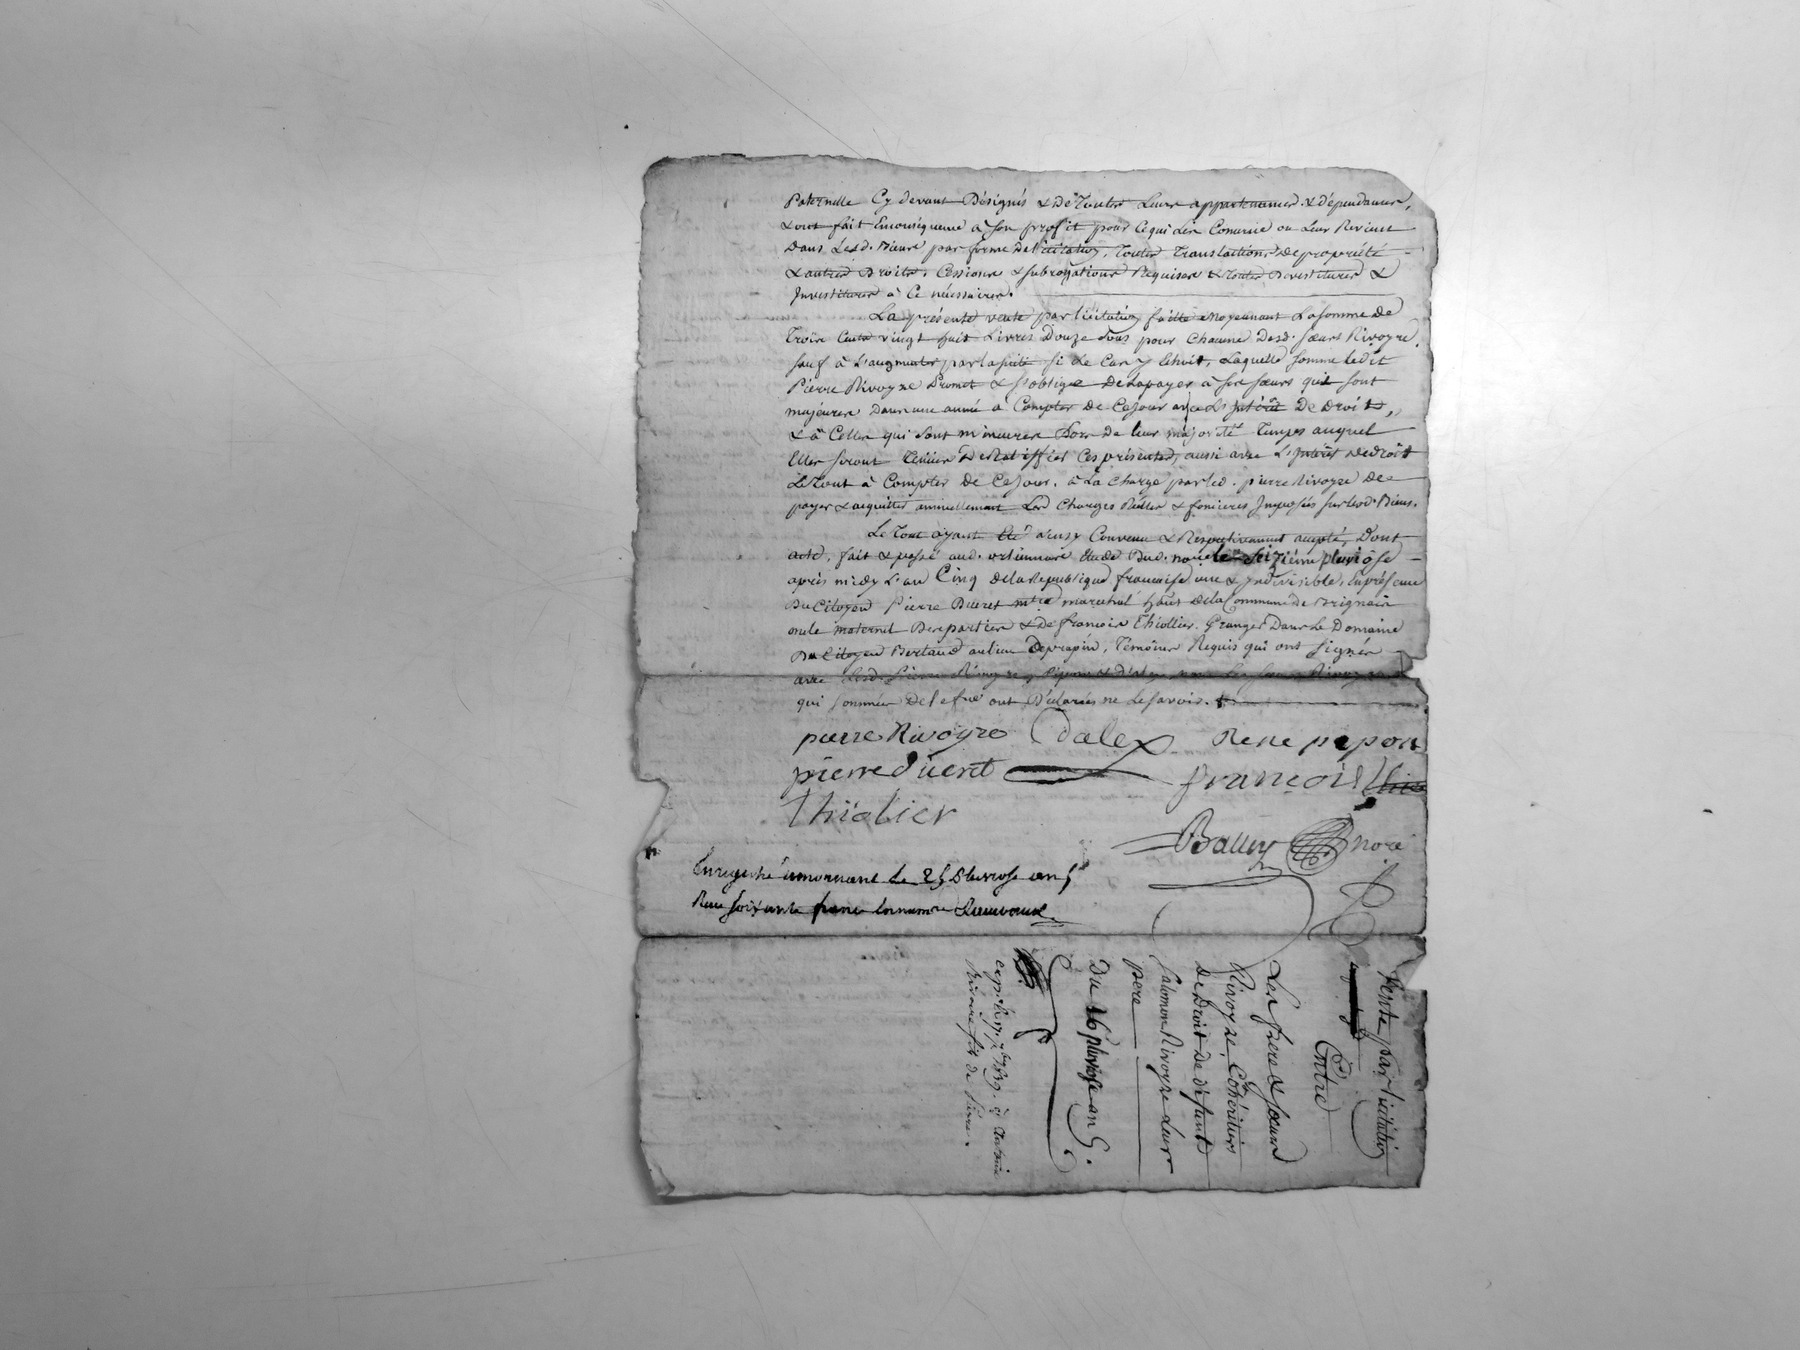 Paternelle Cy devant Désignés & De Toutes Leurs appartenances & dépendances,
& ont fait Enconséquence a son profit pour Cequi Les Conserne ou Leur Revient
Dans Lesd. Biens par forme De licitation, Toutes Translations de propriété
& autres Droits, Cessions & subrogations Requises & Toutes Devestitures &
Investitures à Ce nécessaires.
La présente vente par licitation faitte moyennant La somme De
Trois Cents vingt huit Livres Douze sous pour Chacune Desd. sœurs Rivoyre,
sauf à L'augmenter par la suite si Le Cas y Echoit, Laquelle somme ledit
Pierre Rivoyre Promet & s'oblige De La payer à ses sœurs qui sont
majeures Dans une année à Compter De Ce Jour avec L'Intérêt De Droit,
& à Celles qui sont mineures Lors De leur majorité Temps auquel
Elles seront Tenues De Ratiffier Ces présentes, aussi avec L'Intérêt De Droit
Le Tout à Compter De Ce Jour. à La Charge par led. pierre Rivoyre De
payer & acquitter annuellement Les Charges Réelles & foncieres Imposées sur lesd. Biens.
Le Tout ayant Eté ainsy Convenu & Respectivement accepté, Dont
acte, fait & passé aud. Etude Dud. no.re le seizième pluviose
après midy L'an Cinq De la Republique française une & Indivisible, En présence
Du Citoyen Pierre Dueret marechal De la Commune De Brignais
oncle maternel Des parties & De francois Thiollier Granger Dans Le Domaine
Du Citoyen Bertaud au lieu De Témoins Requis qui ont signés
avec Lesd. Pierre Rivoyre, Pepon & Dalex, non Les sœurs Rivoyre
qui sommées De le faire ont Déclarées ne Le savoir.
pierre Rivoyre Dalex Rene pepon
pierre duerest françois
thiolier
Balley nore
Enregistré a mornant le 25 Pluviose an 5
Reçu soixante francs
Vente par licitation
Entre
Les frere & sœurs
Rivoyre, Cohéritiers
De Droit de défunt
Salomon Rivoyre Leur
pere
Du 16 pluviose an 5.
exp. le 9 7bre 1839 à Antoine
Rivoire fils de Pierre.